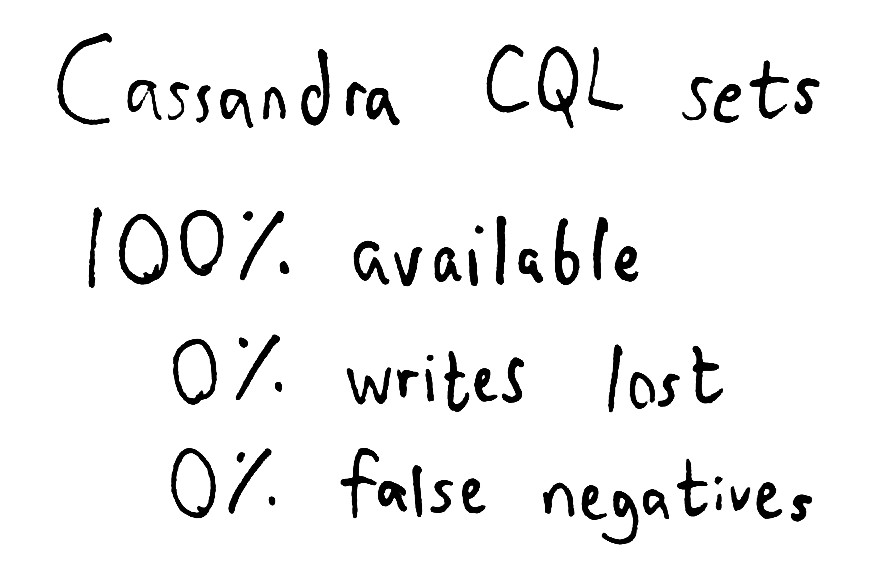 Cassandra CQL sets
100% available
0% writes lost
0% false negatives